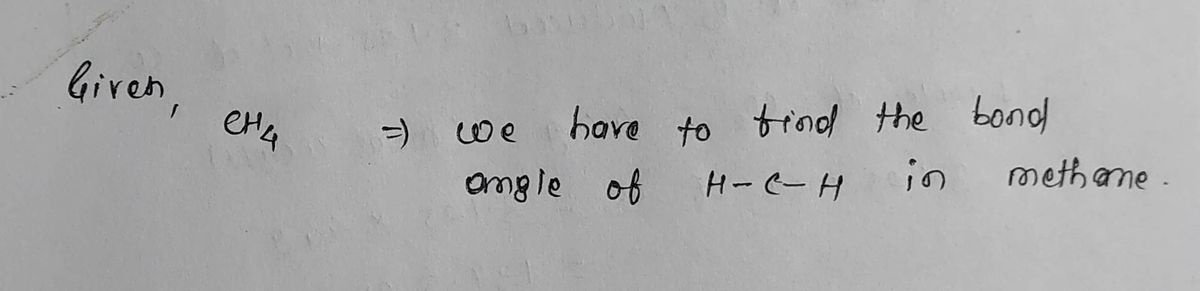 Given,
CH4 ⇒ we have to find the bond
angle of H-C-H in methane.